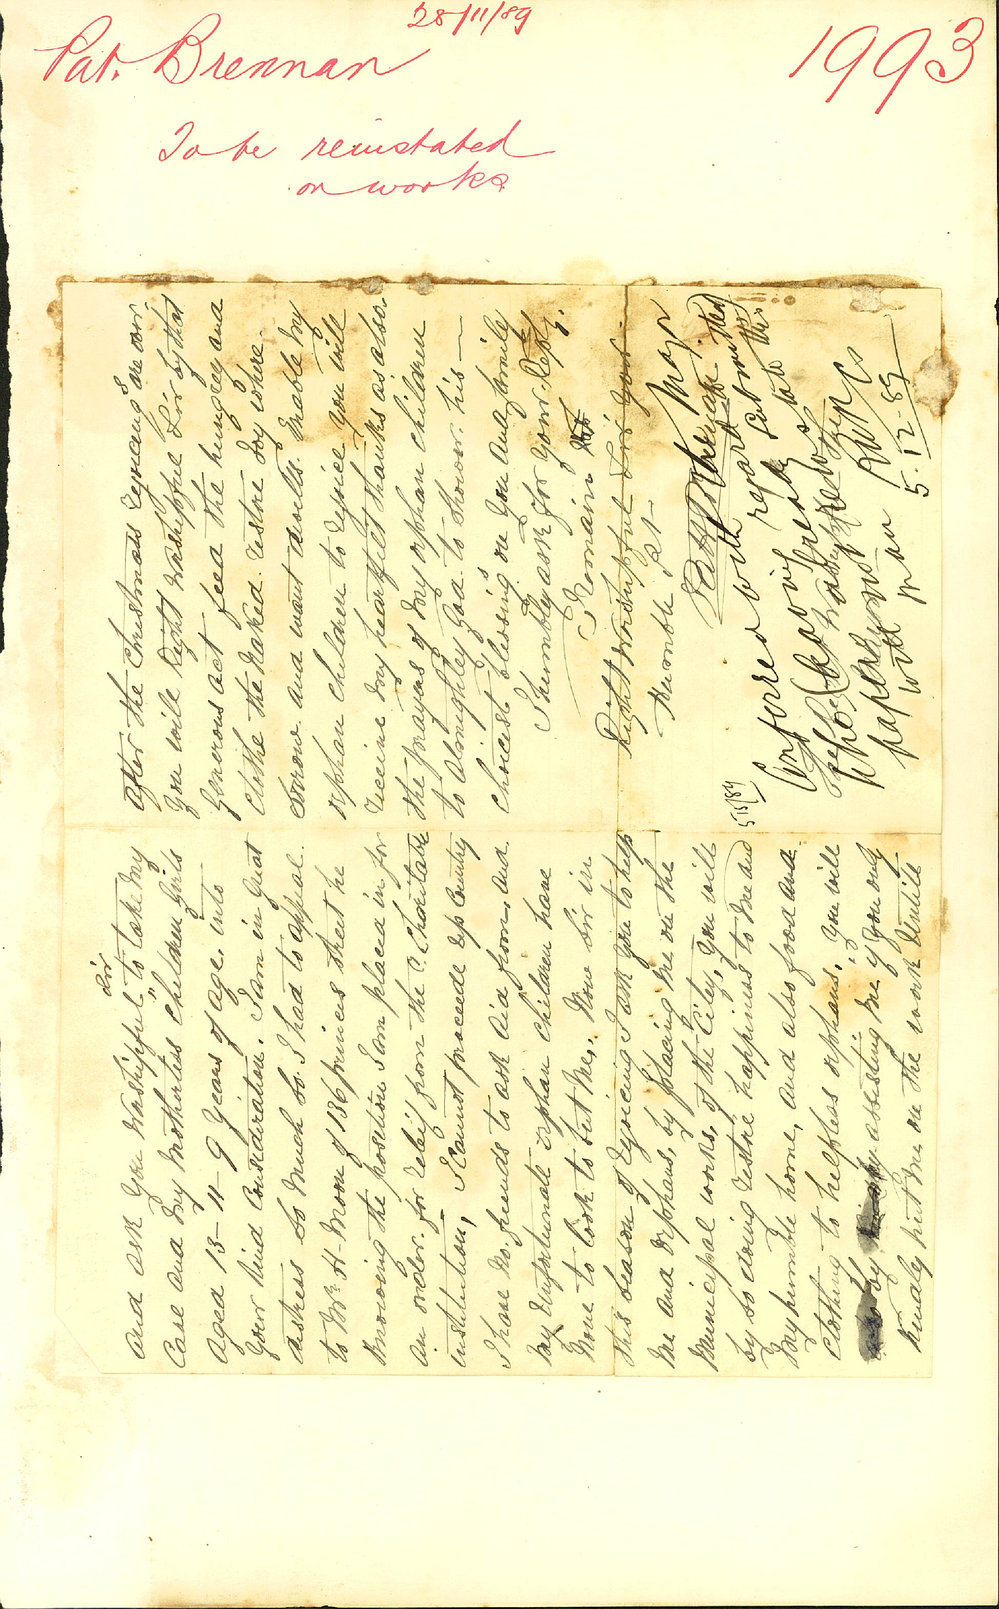 28/11/89
Pat. Brennan
1993
To be reinstated
on works
Sir
and ask you Washipful" to take my
Case and My Motherless Children Girls
Aged 13 - 11 - 9 Years of age. into
your Kind Consideration. I am in great
distress So Much So. I had to appeal.
to Mr. H. Moon of 136 princes street he
Knowing the position I am placed in for
an order. for releif from the C. Charitable
institution, I Cannot proceede up Country
I have No. friends to ask aid from, and.
My Unfortunate Orphan Children have
None to look to but Me,. Now Sir in
this Season of Rejoicing I ask you to help
Me and Orphans, by placing Me on the
Municipal works, of the City, you will
by So doing restore happiness to Me and
My humble home, and also food and.
Clothing to helpless orphans, you will
by assisting Me, if you only
Kindly put Me on the work Untill
after the Christmas rejoicing are over.
You will Right Washipful Sir by that
Generous act feed the hungrey and
Clothe the Naked. restore Joy where.
Sorrow and want dwells. Enable My
orphan Children to rejoice you will
receive my heartfelt thanks as also.
the prayers of My orphan Children
to Almightey God. to Shower. his —
Choicest blessing on you and family
I humbley ask for your Reply.
I Remain
Right Washipful Sir your
Humble St
Patk
5/12/89
Conferred with Mayor
with regard
this
paper
man
5.12.89